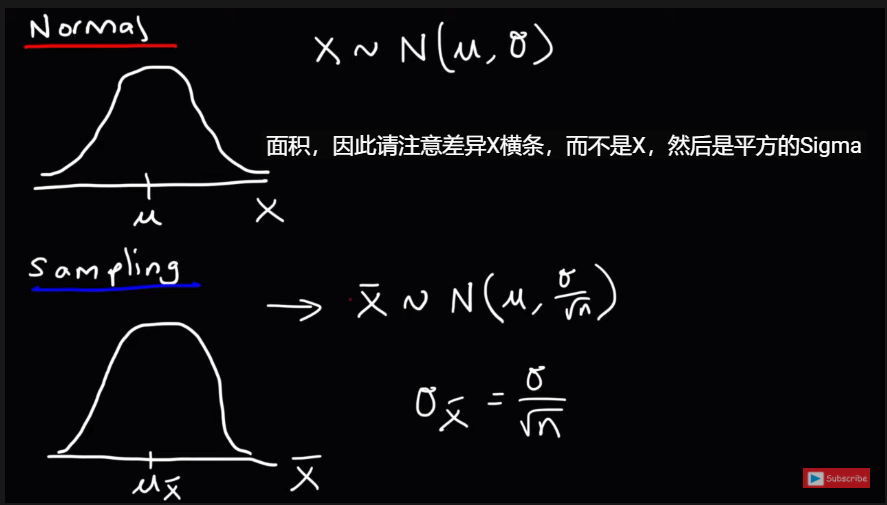 Normal
X ~ N(μ, σ)
面积，因此请注意差异X横条，而不是X，然后是平方的Sigma
μ
X
Sampling
→ X̄ ~ N(μ, σ/√n)
σ_X̄ = σ/√n
μ_X̄
X̄
Subscribe